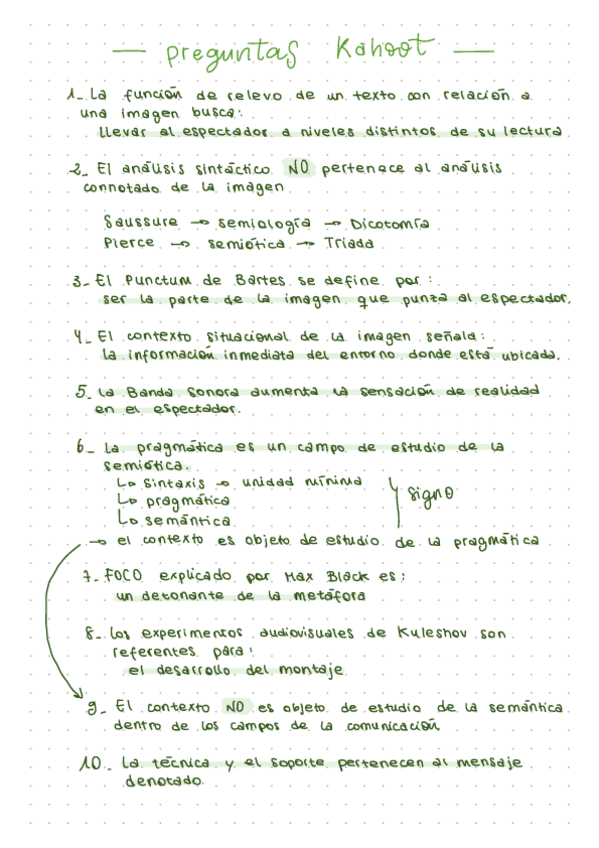 — preguntas Kahoot —
1_ La función de relevo de un texto con relación a
una imagen busca:
llevar al espectador a niveles distintos de su lectura
2_ El análisis sintáctico NO pertenece al análisis
connotado de la imagen
Saussure → semiología → Dicotomía
Pierce → semiótica → Triada
3_ El Punctum de Bartes se define por:
ser la parte de la imagen que punza al espectador.
4_ El contexto situacional de la imagen señala:
la información inmediata del entorno donde está ubicada.
5_ La Banda Sonora aumenta la sensación de realidad
en el espectador.
6_ la pragmática es un campo de estudio de la
semiótica.
↳ sintaxis → unidad mínima
↳ pragmática
↳ semántica
signo
→ el contexto es objeto de estudio de la pragmática
7_ FOCO explicado por Max Black es:
un detonante de la metáfora
8_ Los experimentos audiovisuales de Kuleshov son
referentes para:
el desarrollo del montaje
9_ El contexto NO es objeto de estudio de la semántica
dentro de los campos de la comunicación
10_ La técnica y el soporte pertenecen al mensaje
denotado.